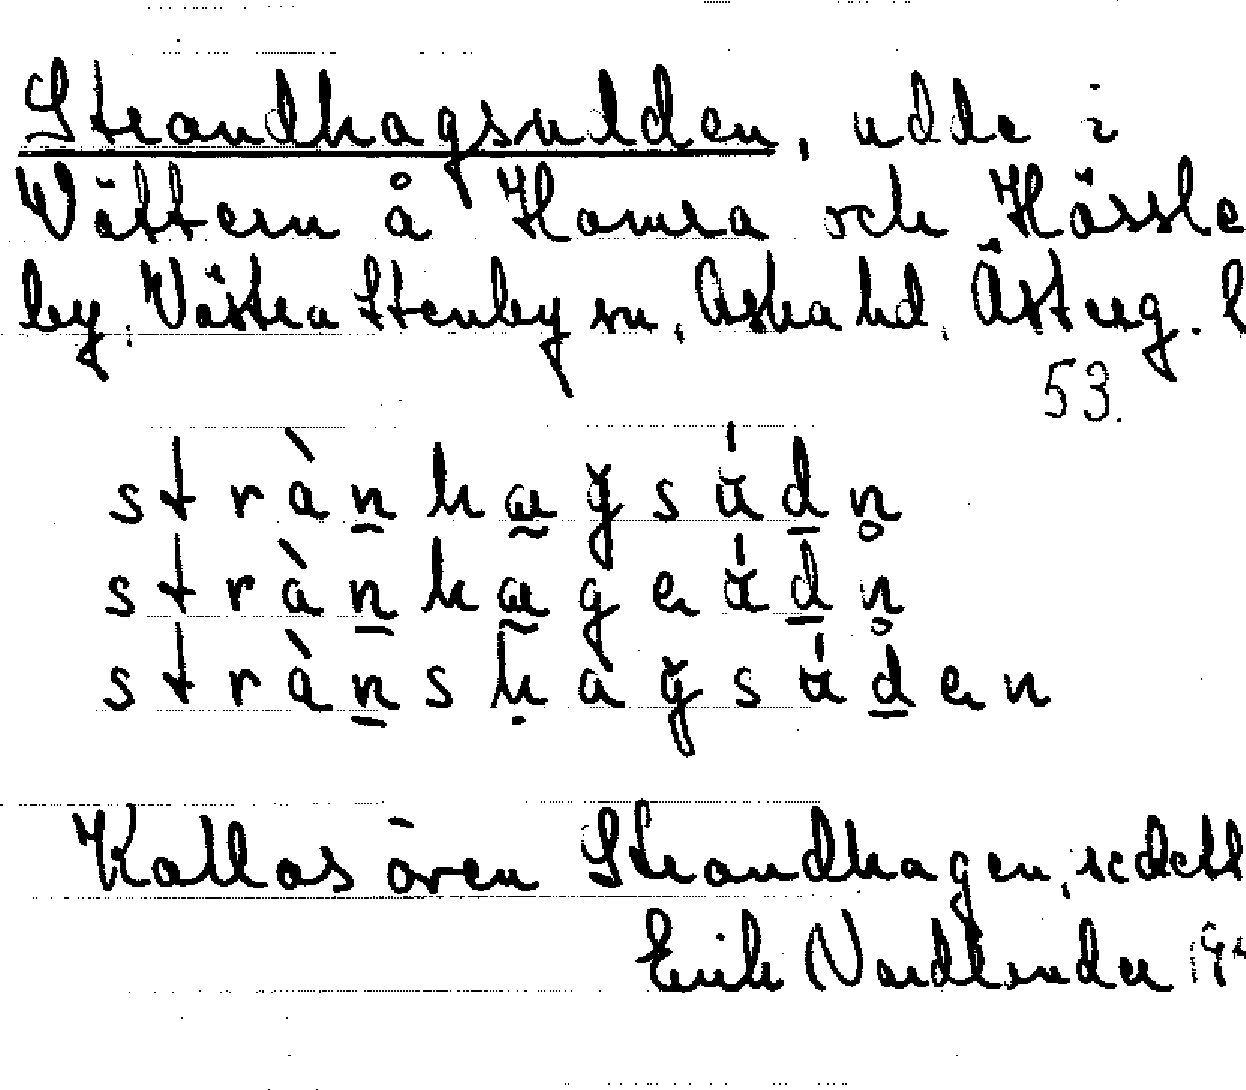 Strandhagsudden, udde i
Vättern å Hamra och Hässle
by, Västra Stenby sn, Aska hd, Österg. l
53.
strànhagsúdn
strànhageúdn
strànshagsúden
Kallas även Strandhagen, se dett
Erik Nordlander 19